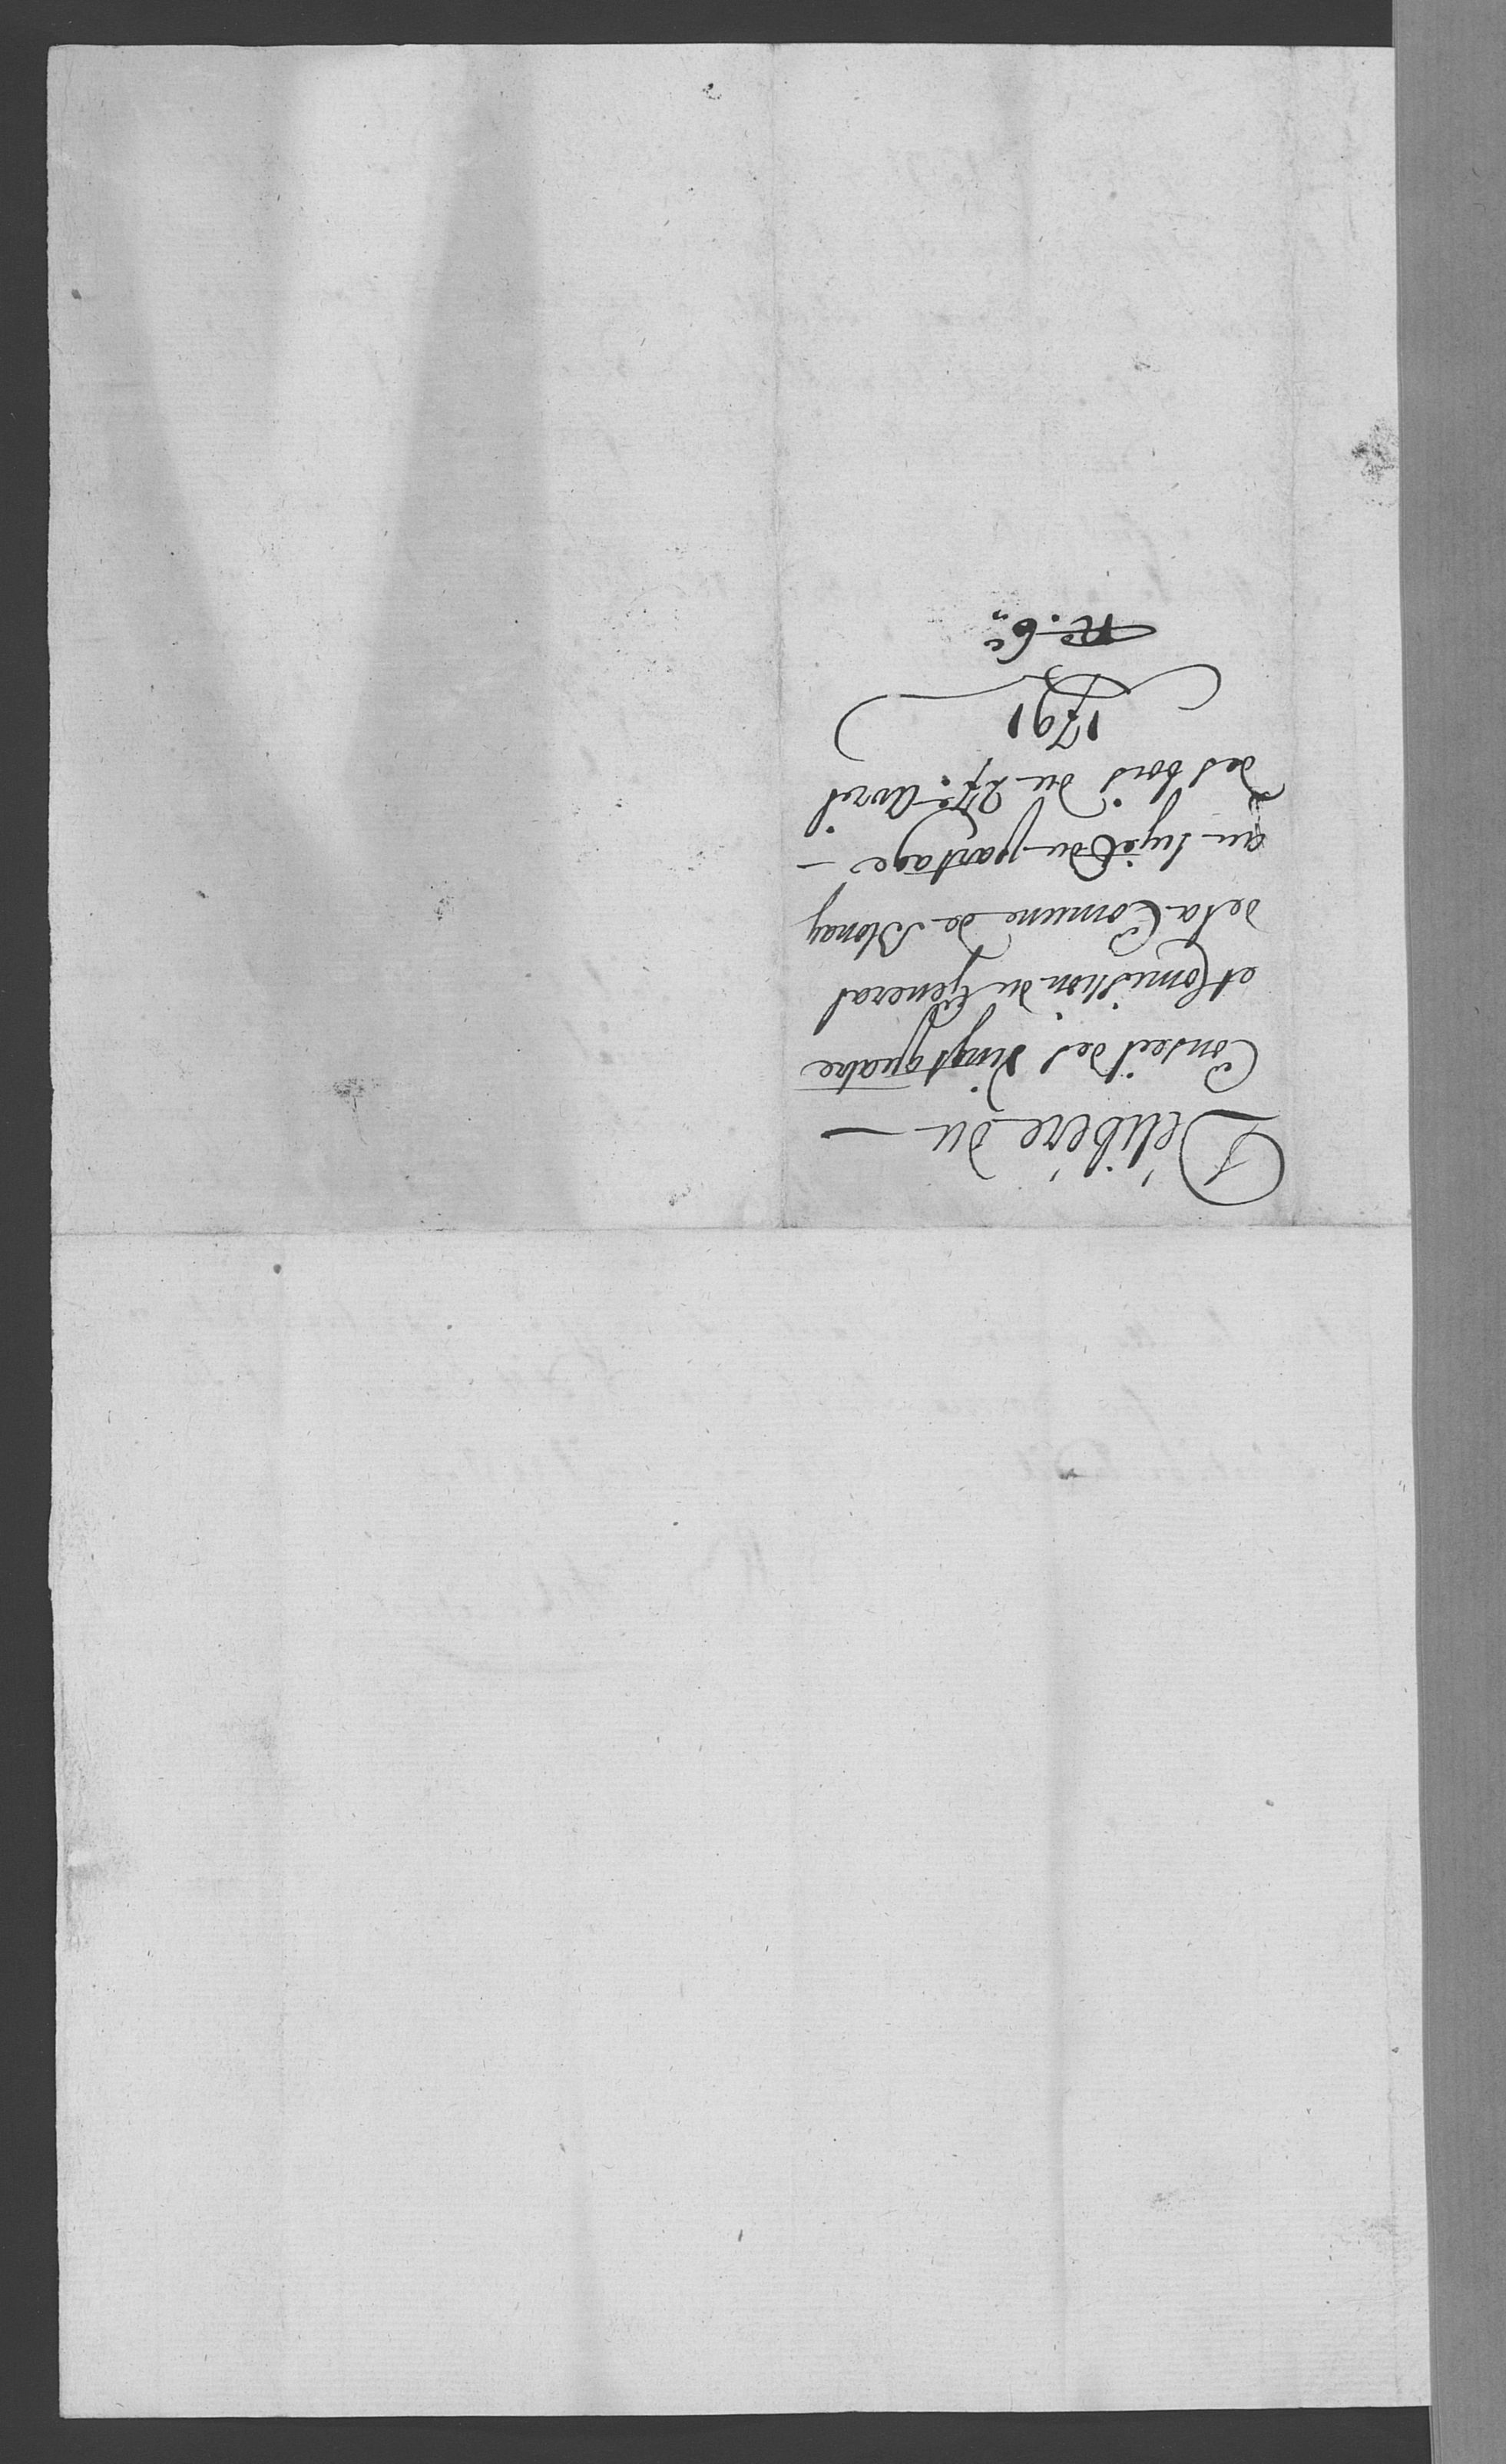 Délibéré du —
Conseil des Vingt quatre
et Comission du General
de la Comune de Blonay
au sujet du partage —
des bois du 27e. Avril
1791
N°. 6.